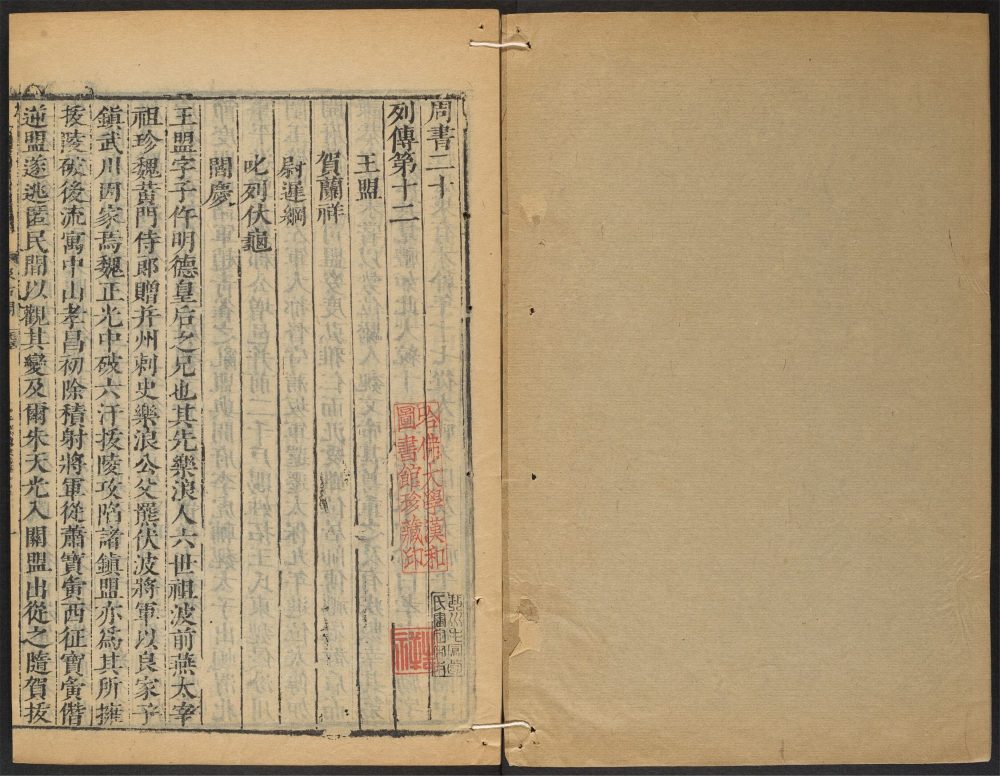 周書二十
列傳第十二
王盟
賀蘭祥
尉遲綱
叱列伏龜
閻慶
王盟字子仵明德皇后之兄也其先樂浪人六世祖波前燕太宰
祖珍魏黃門侍郎贈并州刺史樂浪公父羆伏波將軍以良家子
鎮武川因家焉魏正光中破六汗拔陵攻陷諸鎮盟亦爲其所擁
拔陵破後流寓中山孝昌初除積射將軍從蕭寶夤西征寶夤僭
逆盟遂逃匿民間以觀其變及爾朱天光入關盟出從之隨賀拔
哈佛大學漢和
圖書館珍藏印